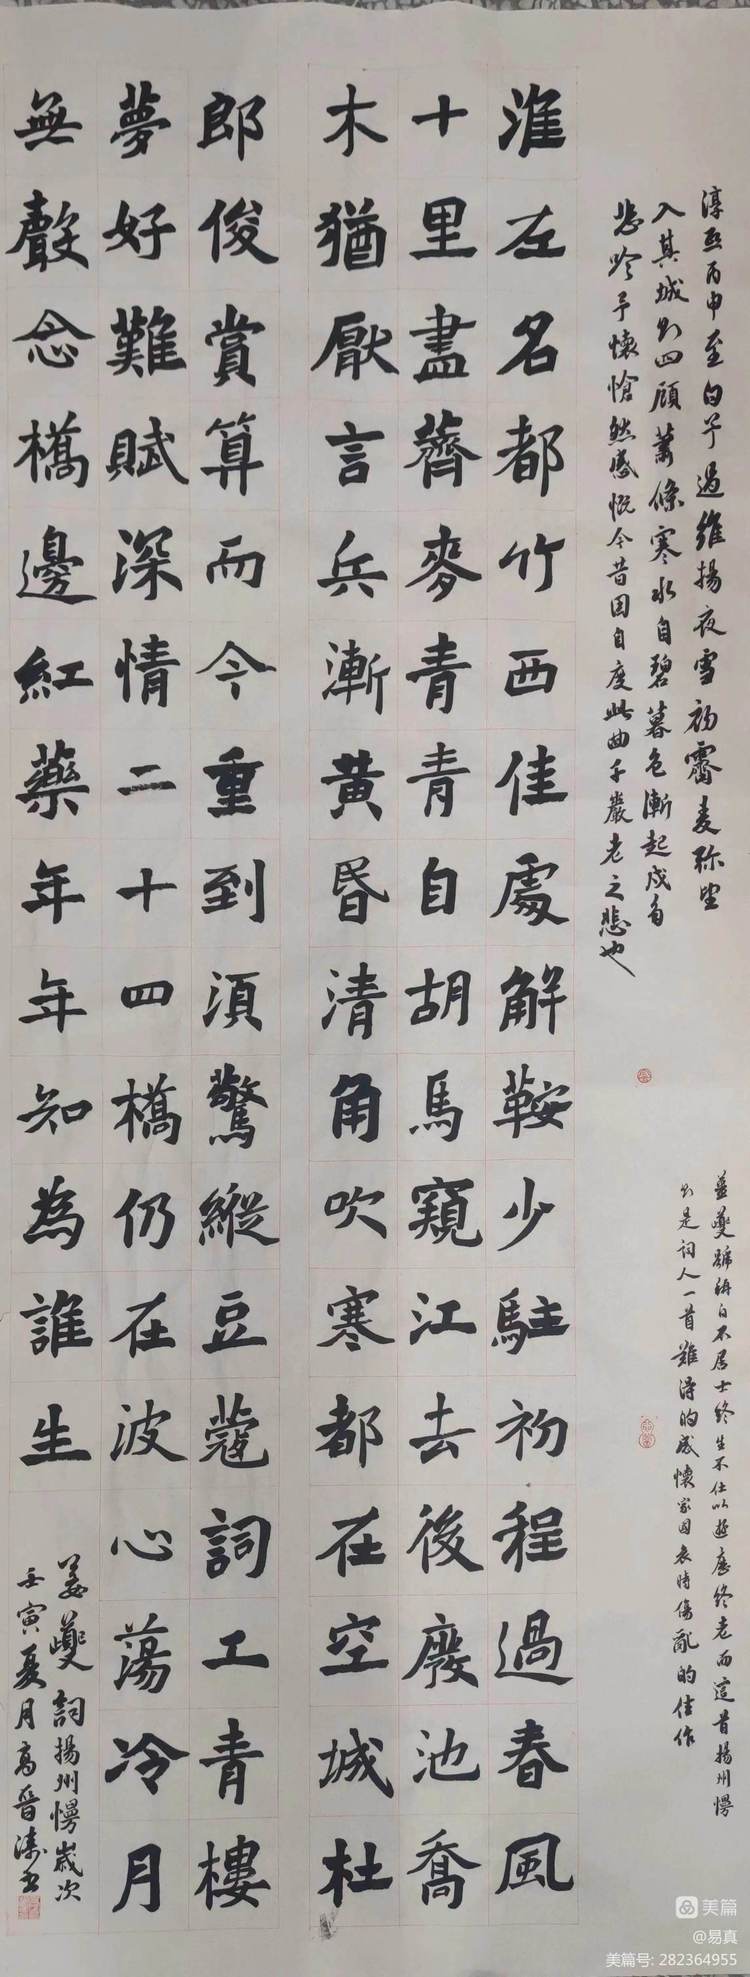 淳熙丙申至日予過維揚夜雪初霽麦弥望
入其城則四顧蕭條寒水自碧暮色漸起戍角
悲吟予懷愴然感慨今昔因自度此曲千巖老之悲也
姜夔號稱白石居士终生不仕以遊歷终老而這首揚州慢
則是词人一首難得的感懷家国哀時傷亂的佳作
淮左名都竹西佳處解鞍少駐初程過春風
十里盡薺麥青青自胡馬窺江去後廢池喬
木猶厭言兵漸黄昏清角吹寒都在空城杜
郎俊賞算而今重到須驚縱豆蔻詞工青樓
夢好難賦深情二十四橋仍在波心蕩冷月
無聲念橋邊紅藥年年知為誰生
姜夔詞揚州慢歲次
壬寅夏月高晉濤書
美篇
@易真
美篇号: 282364955